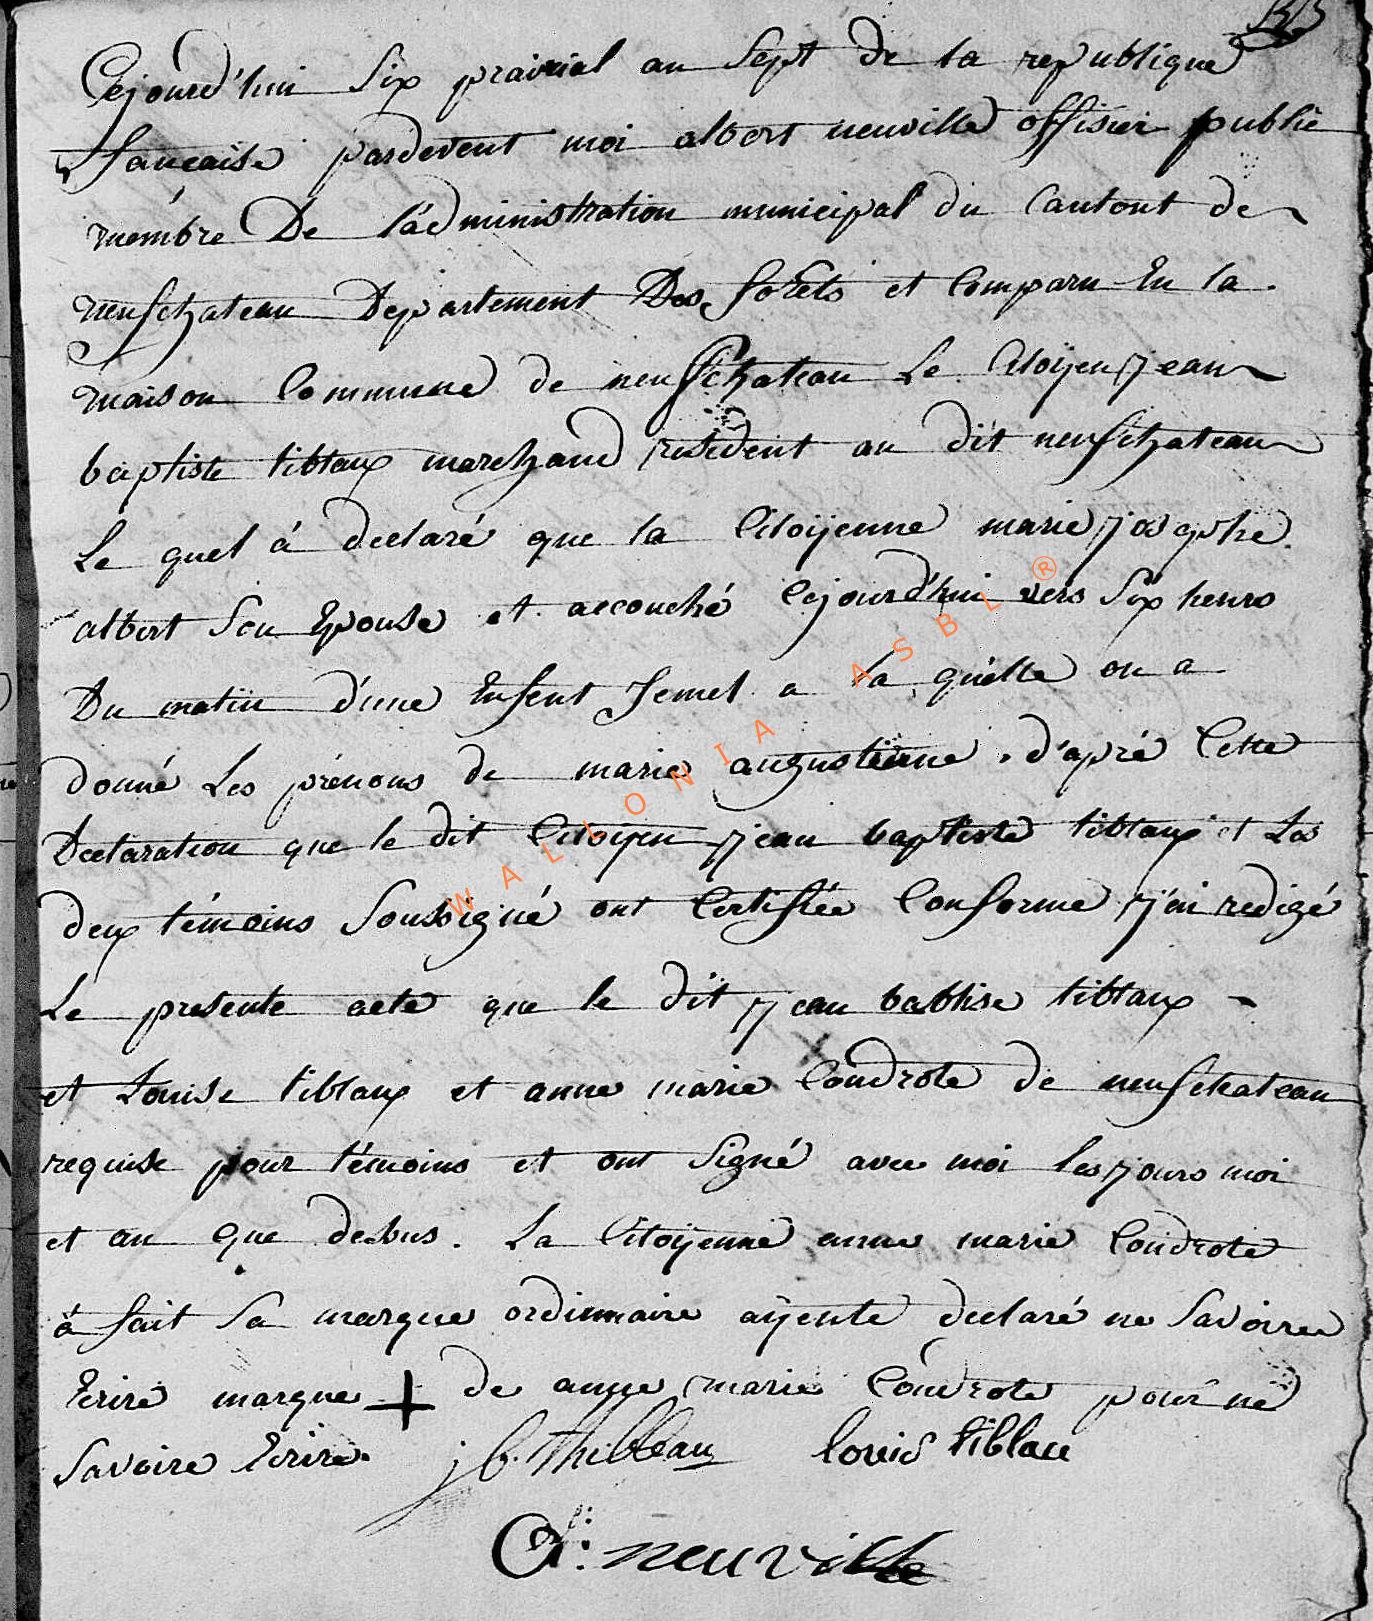 Cejourd'hui Six prairial an Sept de la republique
francaise pardevent moi albert neuville offisier publie
membre De l'administration municipal du Cantont de
neufchateau Departement Des forêts et Comparu En la
maison Commune de neufchateau Le Citoÿen jean
baptiste tiblaux marchand residant au dit neufchateau
Le quel à declaré que la Citoÿenne marie
albert Son Epouse et accouché Cejourd'hui vers Six heurs
Du matin d'une Enfent femel a la quélle on a
donné Les prénons de marie augustinne d'apré Cette
Declaration que le dit Citoÿen jean baptiste tiblaux et Les
deux témoins Soussigné ont Certifiée Conforme j'ai redigé
Le presente acte que le dit jean babtise tiblaux
et Louise tiblaux et anne marie Condrote de neufchateau
requise pour témoins et ont Signé avec moi les jours moi
et an que dessus. La Citoÿenne anne marie Condrote
à fait Sa marque ordinnaire aÿente declaré ne Savoire
Ecrire marque + de anne marie Condrote pour ne
Savoire Ecrire. j b. thibleau louis tiblau
A: neuville
WALLONIA ASBL ®